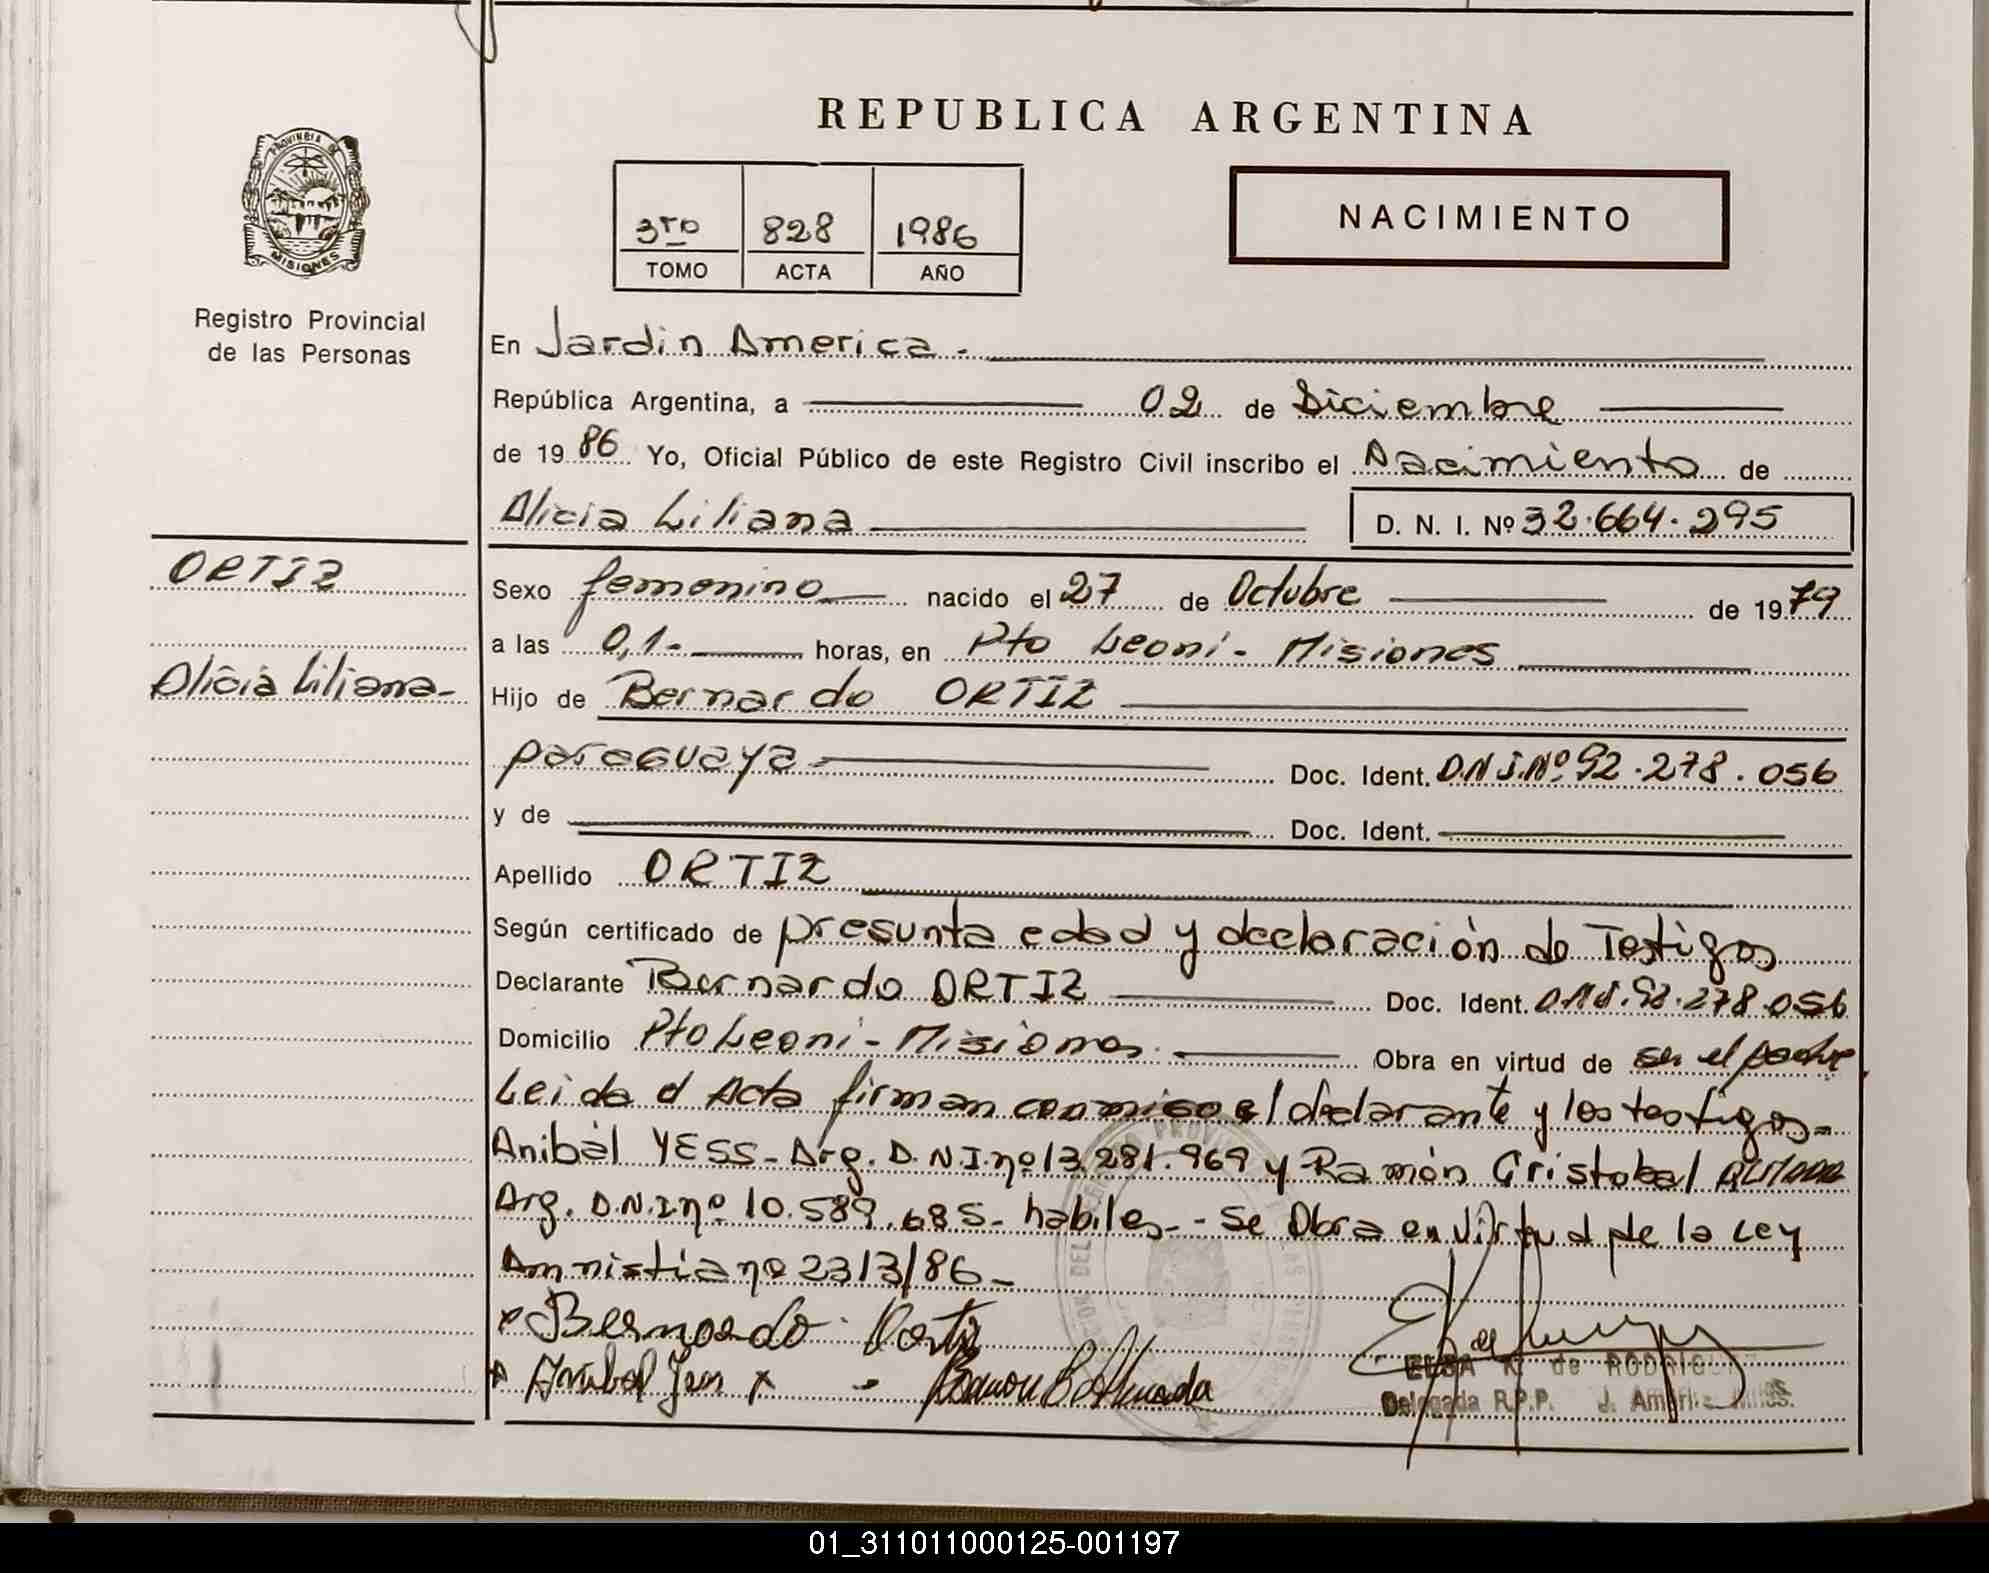 REPUBLICA ARGENTINA
PROVINCIA DE
MISIONES
3ro 828 1986
TOMO ACTA AÑO
NACIMIENTO
Registro Provincial
de las Personas
En Jardin America.
República Argentina, a 02 de Diciembre
de 1986 Yo, Oficial Público de este Registro Civil inscribo el Nacimiento de
Alicia Liliana D. N. I. Nº 32.664.295
ORTIZ
Alicia Liliana-
Sexo femenino nacido el 27 de Octubre de 1979
a las 0,1- horas, en Pto Leoni - Misiones
Hijo de Bernardo ORTIZ
paraguaya Doc. Ident. D.N.I.Nº 92.278.056
y de Doc. Ident.
Apellido ORTIZ
Según certificado de presunta edad y declaración de Testigos
Declarante Bernardo ORTIZ Doc. Ident. D.N.I. 92.278.056
Domicilio Pto Leoni - Misiones Obra en virtud de ser el padre
Leida el Acta firman conmigo el declarante y los testigos-
Anibal YESS- Arg. D.N.I.nº 13.281.969 y Ramón Cristobal
Arg. D.N.I nº 10.589.685- habiles-- Se Obra en virtud de la Ley
Amnistia nº 2313/86-
Bernardo Ortiz
Anibal Ramon
ELSA de RODRIGU
Delegada R.P.P. J. Améri
01_311011000125-001197